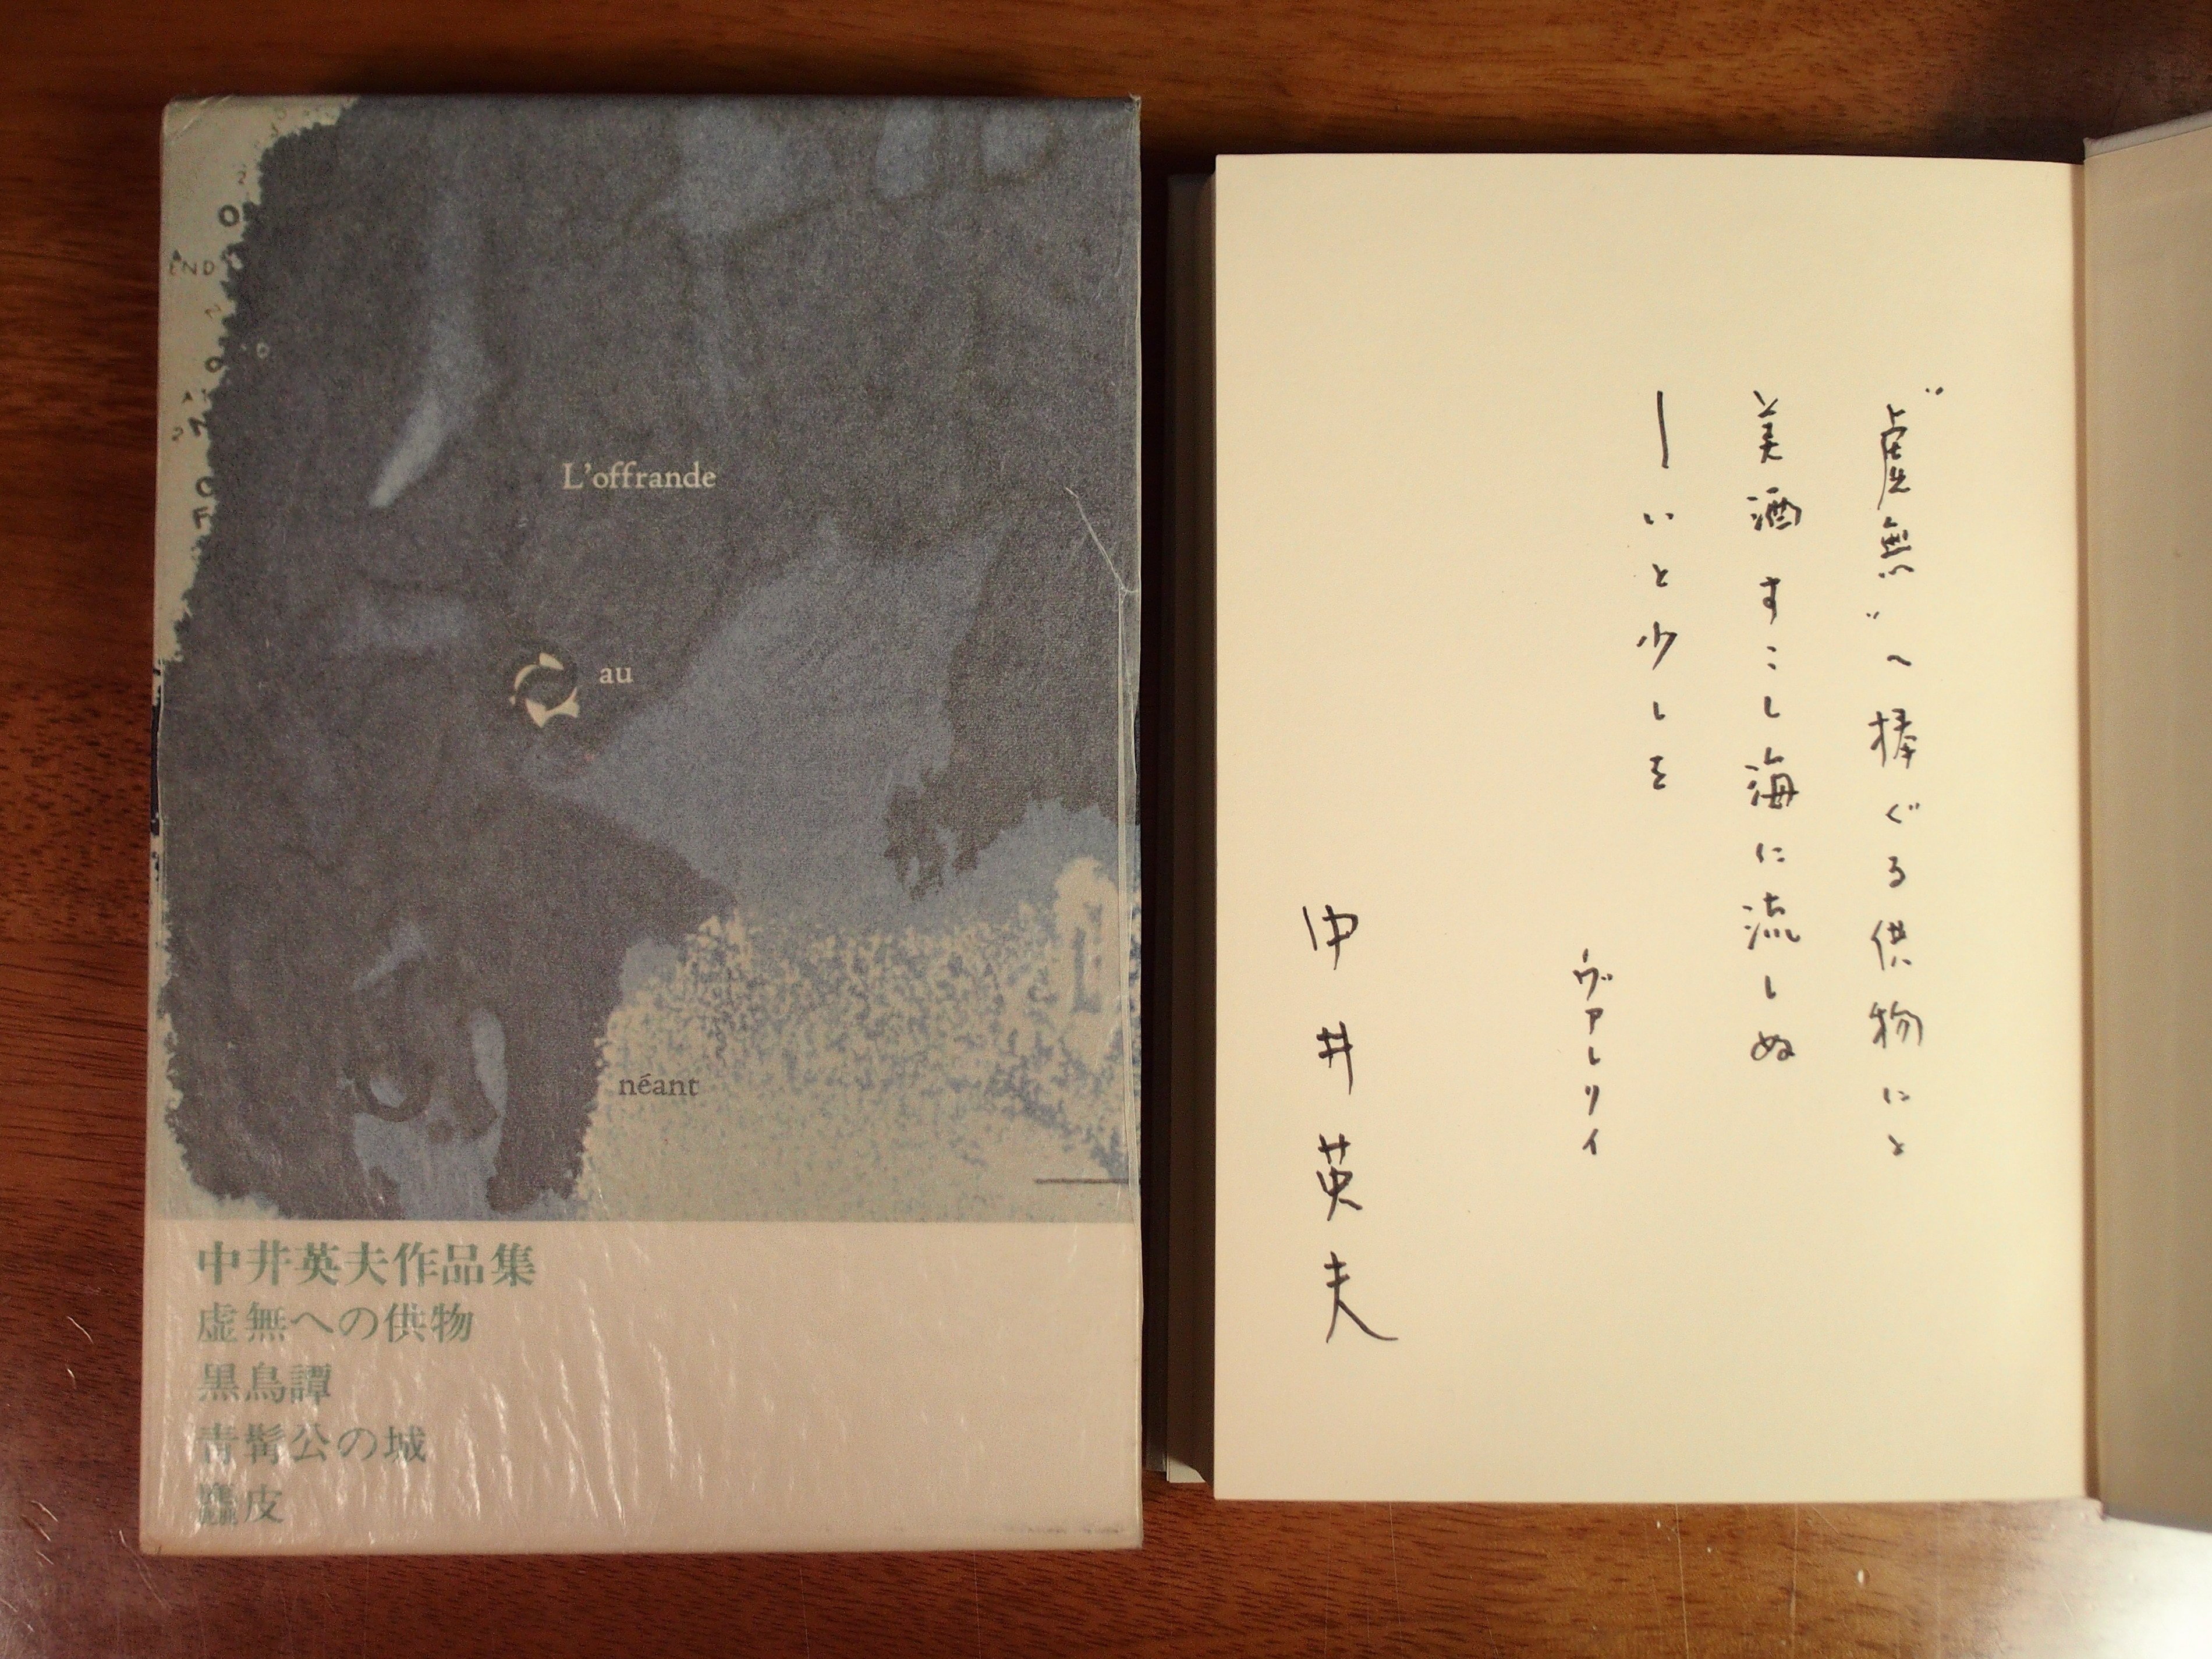 L'offrande
au
néant
中井英夫作品集
虚無への供物
黒鳥譚
青髯公の城
麤皮
END
〝虚無〟へ捧ぐる供物にと
美酒すこし海に流しぬ
―いと少しを
ヴァレリイ
中井英夫